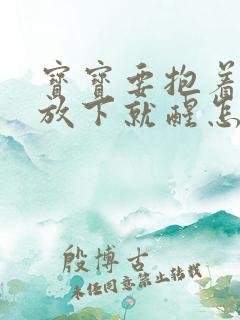 宝宝要抱着
放下就醒怎
殷博古
未经同意禁止转载